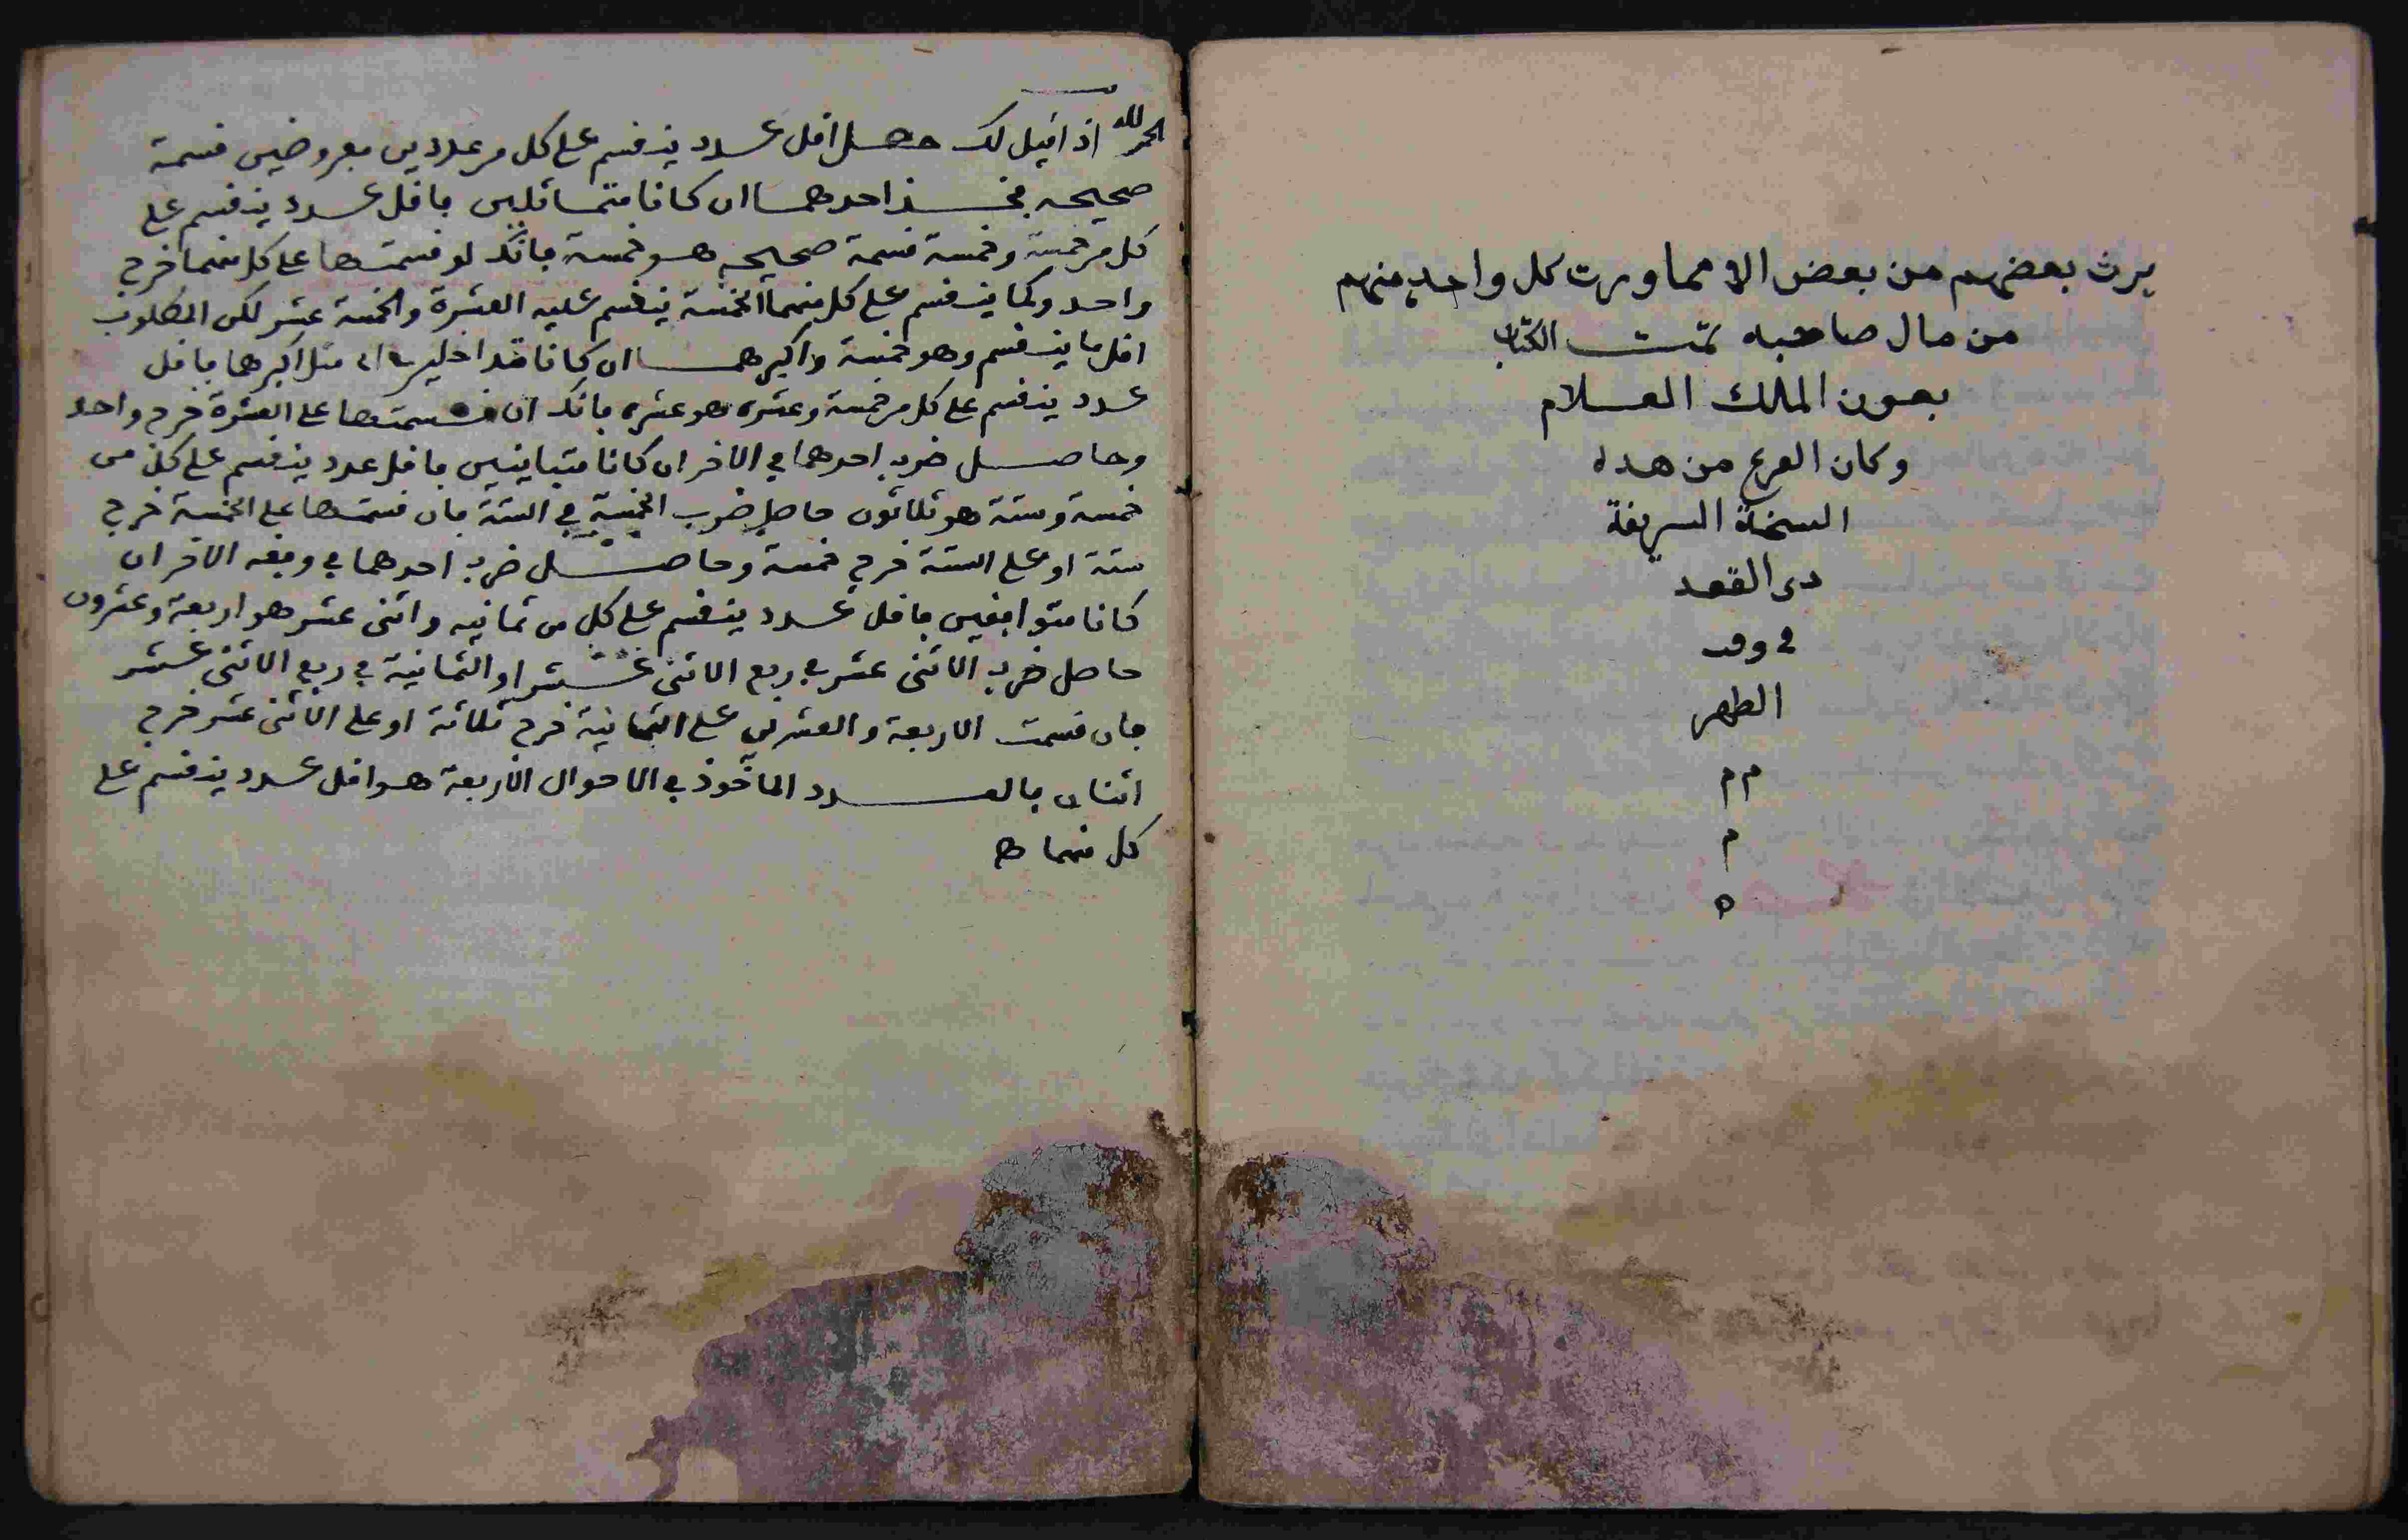 يرث بعضهم من بعض الا مما ورت كل واحد منهم
من مال صاحبه تمت الكتاب
بعون الملك العلام
وكان الفرع من هده
السخة السريفة
دى القعد
في وقت
الظهر
م م
م
ه
الحمد لله اذا قيل لك حصل اقل عدد ينقسم على كل من عددين مفروضين قسمة
صحيحه فخذ احدهما ان كانا متماثلين فاقل عدد ينقسم على
كل من خمسة وخمسة قسمة صحيحه هو خمسة فانك لو قسمتها على كل منهما خرج
واحد وكما ينقسم على كل منهما الخمسة ينقسم عليه العشرة والخمسة عشر لكن المطلوب
اقل ما ينقسم وهو خمسة واكبرهما ان كانا متداخلين اى مثل اكبرهما فاقل
عدد ينقسم على كل من خمسة وعشره هو عشره فانك ان قسمتها على العشرة خرج واحد
وحاصل ضرب احدهما في الاخر ان كانا متباينين فاقل عدد ينقسم على كل من
خمسة وستة هو ثلاثون حاصل ضرب الخمسة في الستة فان قسمتها على الخمسة خرج
ستة او على الستة خرج خمسة وحاصل ضرب احدهما في وفقه الاخر ان
كانا متوافقين فاقل عدد ينقسم على كل من ثمانيه واثنى عشر هو اربعة وعشرون
حاصل ضرب الاثنى عشر في ربع الاثنى عشر او الثمانية في ربع الاثنى عشر
فان قسمت الاربعة والعشرين على الثمانية خرج ثلاثة او على الاثنى عشر خرج
اثنان فالعدد الماخوذ في الاحوال الاربعة هو اقل عدد ينقسم على
كل منهما ه